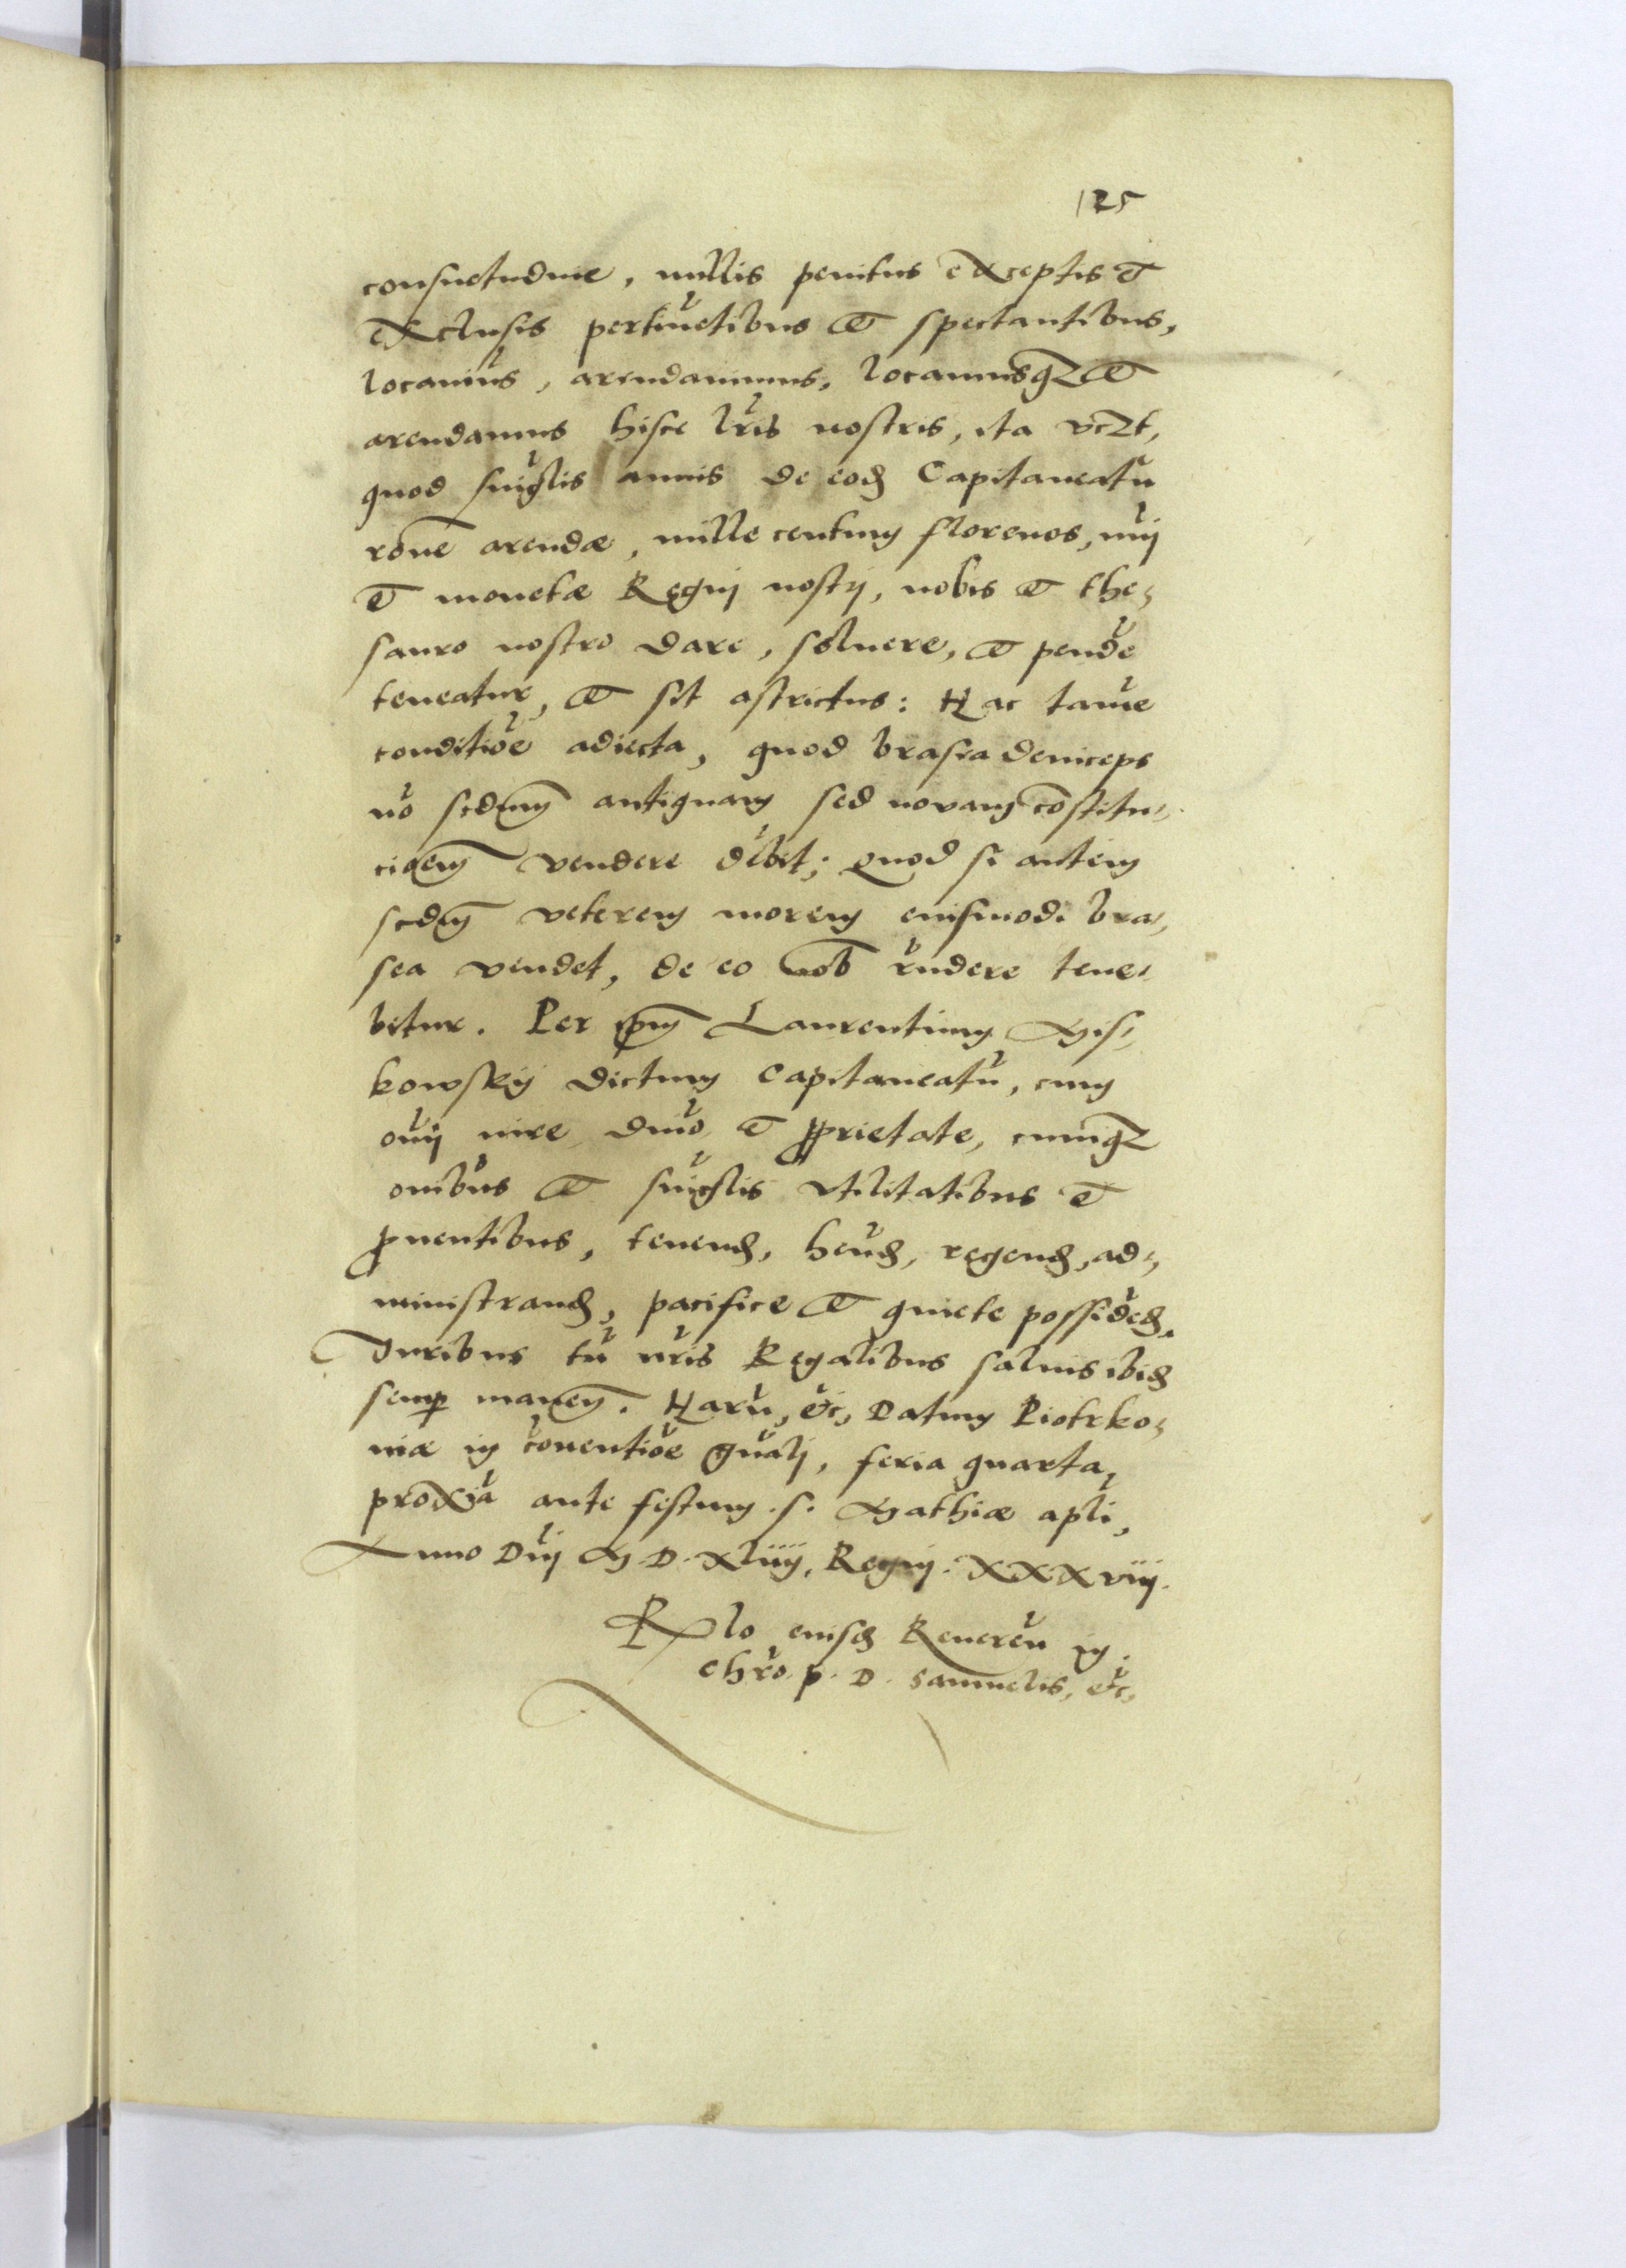 125
consuetudine, nullis penitus exceptis et
exclusis pertinẽtibus et spectantibus,
locavimũs, arendavimus, locamusqȝ et
arendamus hisce lr̃is nostris, ita vcȝt,
quod singl̃is annis de eod̃ Capitaneatu
rõne arendæ, mille centum florenos, nũi
et monetæ Regni nostri, nobis et the,
sauro nostro dare, soluere, et pendẽ
teneatur, et sit astrictus: Hac tamẽ
conditiõe adiecta, quod brasea deinceps
nõ scdum antiquam sed novam cõstitu,
cioem vendere dẽbit; Quod si autem
scdm veterem morem eiusmodi bra,
sea vendet, de eo nob rñdere tene,
bitur. Per ipm Laurentium Mis,
kowskÿ dictum Capitaneatũ, cum
oñi iure dñio et proprietate, cumqȝ
onibũs et singl̃is vtilitatibus et
prouentibus, tenend̃, hẽnd̃, regend̃, ad,
ministrand̃, pacifice et quiete possidẽd̃.
Juribus tñ nr̃is Regalibus saluis ibid̃
semp̱ manen̄. Harũ, etc, Datum Piotrko,
uiæ in cõuentiõe gñali, feria quarta,
proxĩa ante festum .s. Mathiæ apl̃i,
Anno Dñi M D. xliiij, Regni. XXXviij.
Rlo eiusd̃ Reuerẽn in
chrõ. p. D. Samuelis, etc,